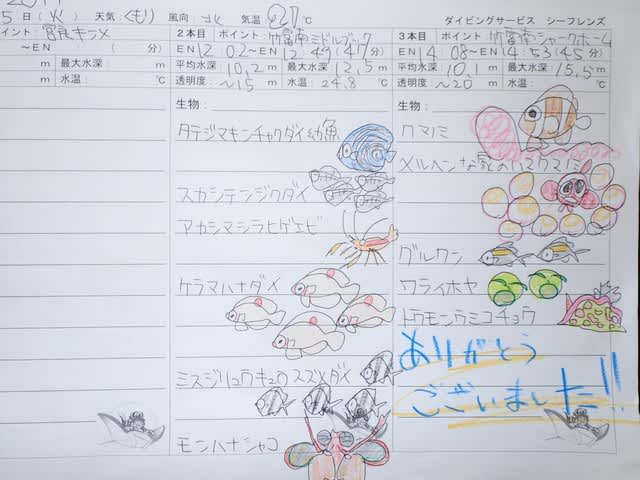 5日(火) 天気:くもり 風向:北 気温 27℃
ダイビングサービス シーフレンズ
イント:
～EN (分)
m 最大水深: m
m 水温: ℃
2本目 ポイント:竹富南ミドルブック
EN 12:02～EN 12:49(47分)
平均水深 10.2m 最大水深 12.5m
透明度 ～15m 水温: 24.8℃
生物:
タテジマキンチャクダイ幼魚
スカシテンジクダイ
アカシマシラヒゲエビ
ケラマハナダイ
ミスジリュウキュウスズメダイ
モンハナシャコ
3本目 ポイント:竹富南シャークホール
EN 14:08～EN 14:53(45分)
平均水深 10.1m 最大水深: 15.5m
透明度 ～20m 水温: ℃
生物:
クマノミ
メルヘンな家のハマクマノミ
グルクン
ワライホヤ
トウモンウミコチョウ
ありがとう
ございました!!